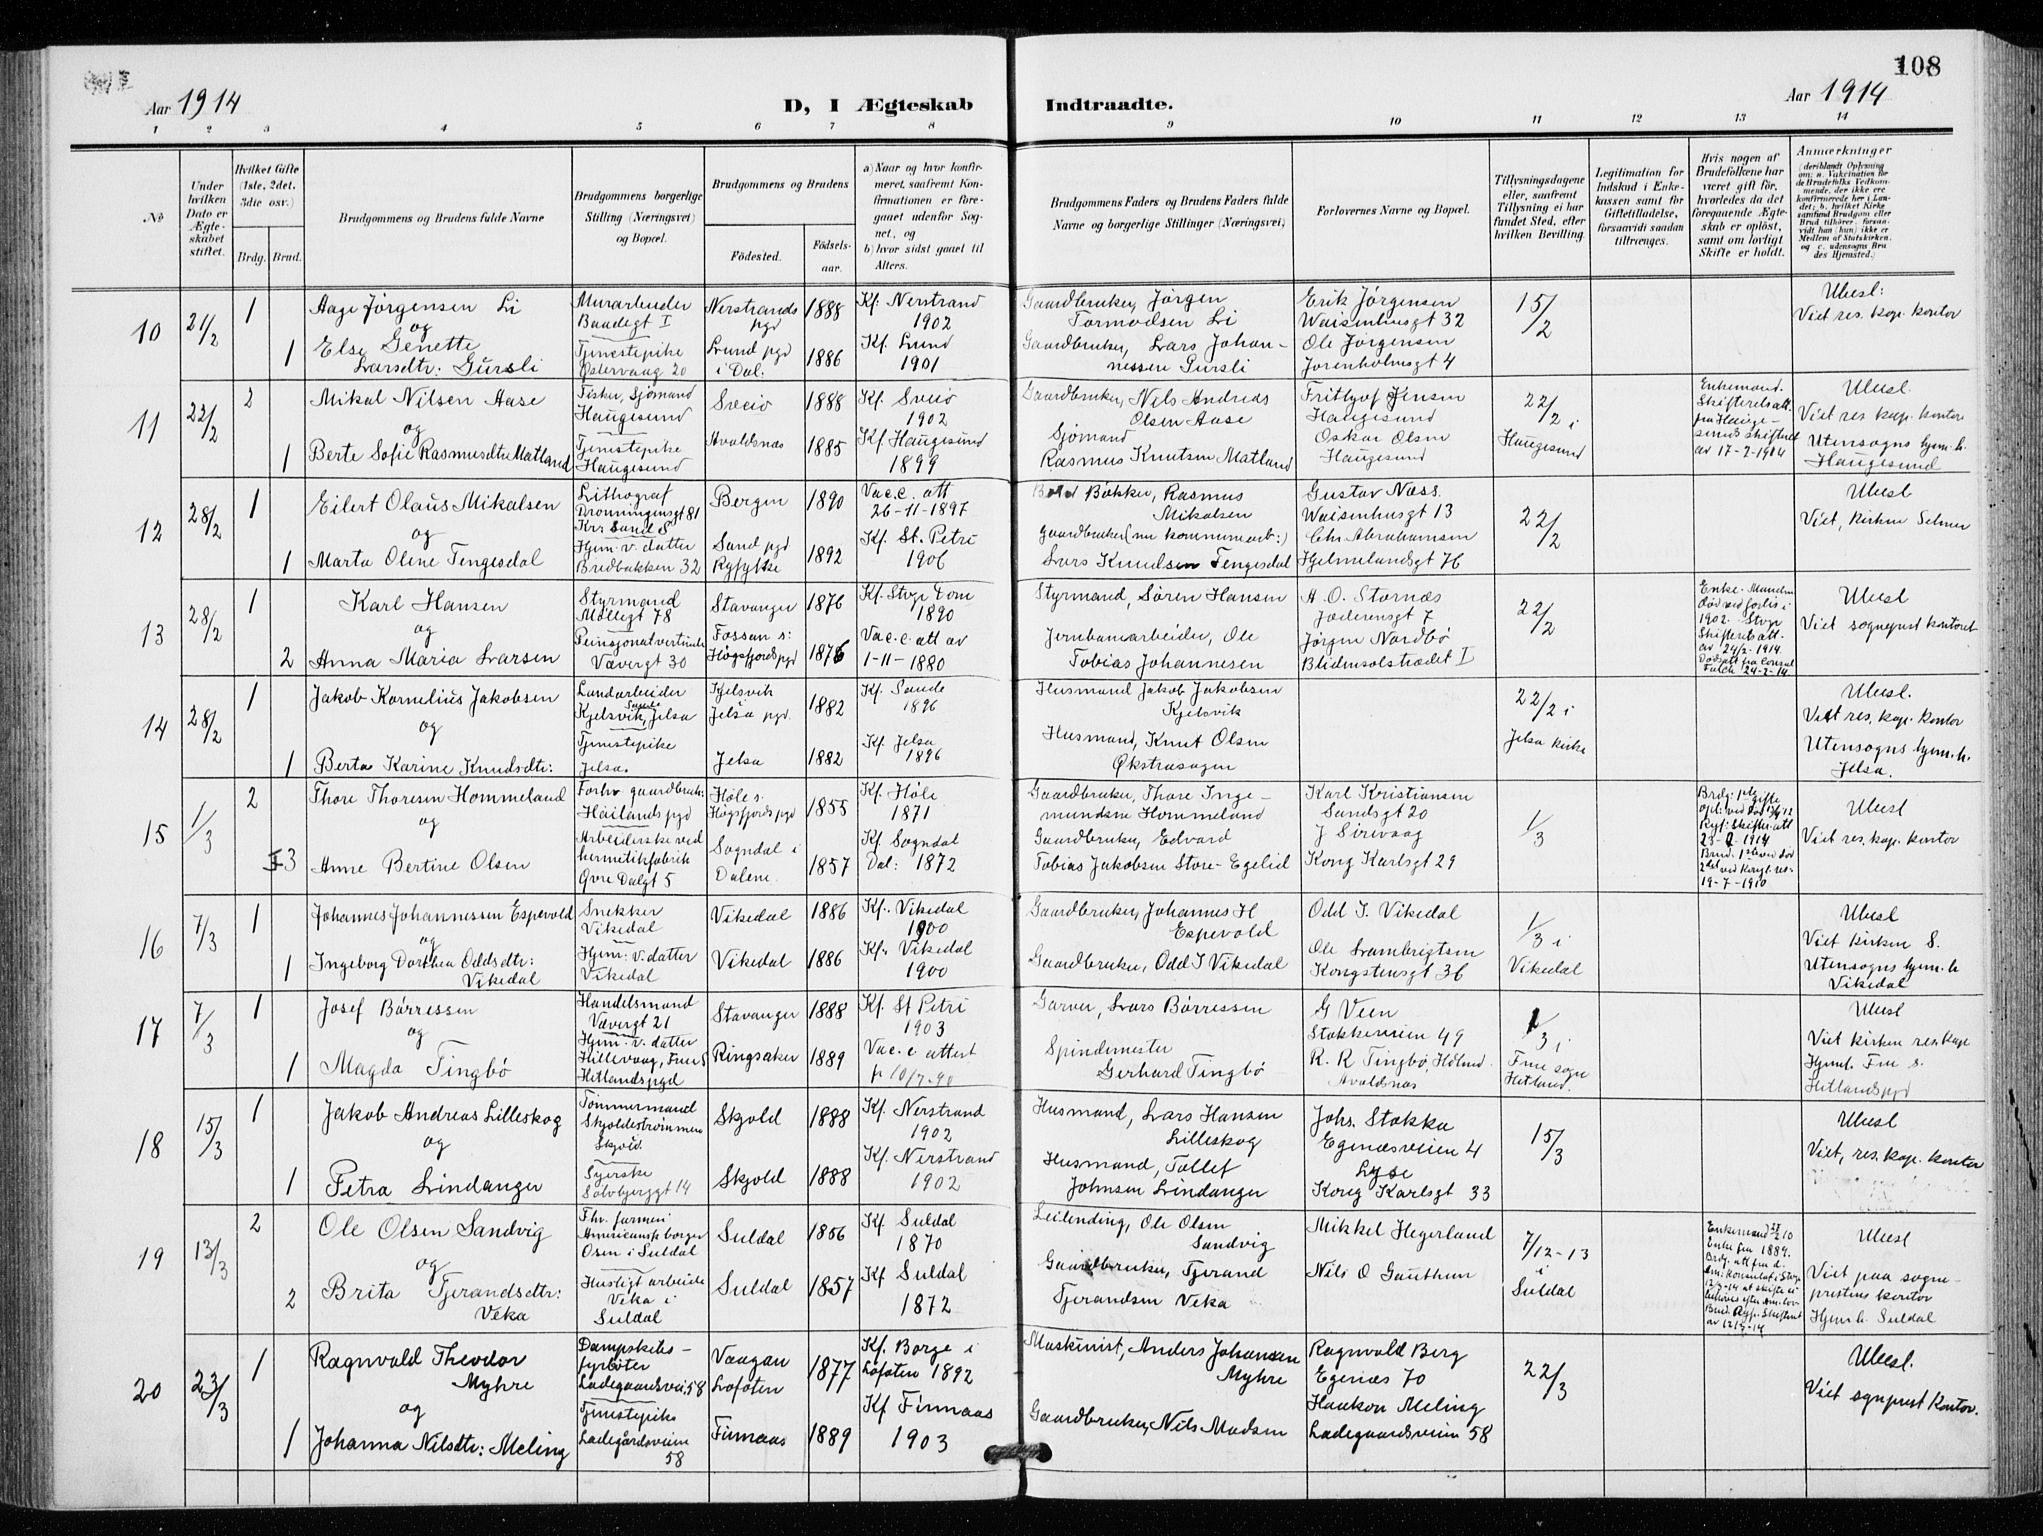 108
Aar 1914
D, I Ægteskab Indtraadte.
Aar 1914
1 2 3 4 5 6 7 8 9 10 11 12 13 14
№
Under hvilken Dato er Ægteskabet stiftet.
Hvilket Gifte (1ste, 2det, 3die osv.)
Brdg. Brud.
Brudgommens og Brudens fulde Navne
Brudgommens borgerlige Stilling (Næringsvei) og Bopæl.
Brudgommens og Brudens
Fødested.
Fødselsaar.
a) Naar og hvor konfirmeret, saafremt Konfirmationen er foregaaet udenfor Sognet, og
b) hvor sidst gaaet til Alters.
Brudgommens Faders og Brudens Faders fulde Navne og borgerlige Stillinger (Næringsvei)
Forlovernes Navne og Bopæl.
Tillysningsdagene eller, saafremt Tillysning ei har fundet Sted, efter hvilken Bevilling.
Legitimation for Indskud i Enkekassen samt for Giftetilladelse, forsaavidt saadan tiltrænges.
Hvis nogen af Brudefolkene har været gift før, hvorledes da det foregaaende Ægteskab er opløst, samt om lovligt Skifte er holdt.
Anmærkninger
10
21/2
1
Aage Jørgensen Li
og
1
Else Genette
Larsdtr: Gursli
Murarbeider
Baadegt I
Tjenestepike
Østervaag 20
Nerstrands pgd
1888
Lund pgd i Dal:
1886
Kf: Nerstrand
1902
Kf. Lund
1901
Gaardbruker, Jørgen
Tormodsen Li
Gaardbruker, Lars Johan-
nessen Gursli
Erik Jørgensen
Waisenhusgt 32
Ole Jørgensen
Jorenholmsgt 4
15/2
Ubesl:
Viet res. kap. kontor
11
22/2
2
Mikal Nilsen Aase
og
1
Berte Sofie Rasmusdtr Matland
Fisker, Sjømand
Haugesund
Tjenestepike
Haugesund
Sveio
1888
Avaldsnæs
1885
Kf. Sveio
1902
Kf. Haugesund
1899
Gaardbruker, Nils Andreas
Olsen Aase
Sjømand
Rasmus Knutsen Matland
Frithjof Jensen
Haugesund
Oskar Olsen
Haugesund
22/2 i
Haugesund
Enkemand.
Skifteretsatt.
fra Hauge-
sunds skifteret
av 17-2-1914
Ubesl.
Viet res. kap. kontor
Utensogns hjem. h.
Haugesund
12
28/2
1
Eilert Olaus Mikalsen
og
1
Marta Oline Tengesdal
Lithograf
Dronningensgt 81
Kr: Sand S
Hjem. v. datter
Bredbakken 32
Bergen
1890
Sand pgd
Ryfylke
1892
Vac.c. att
26-11-1897
Kf. St. Petri
1906
Bøkker, Rasmus
Mikalsen
Gaardbruker (nu kommunearb:)
Lars Knudsen Tengesdal
Gustav Næss.
Waisenhusgt 13
Chr. Abrahamsen
Hjelmelandsgt 76
22/2
Ubesl
Viet, kirken Selmer
13
28/2
1
Karl Hansen
og
2
Anna Maria Larsen
Styrmand
Møllegt 78
Pensjonatvertinde
Vævergt 30
Stavanger
1876
Fossan s:
Høgsfjords pgd
1876
Kf. Stvgr Dom
1890
Vac.c. att av
1-11-1880
Styrmand, Søren Hansen
Jernbanearbeider, Ole
Tobias Johannesen
A. O. Stornæs
Jæderensgt 7
Jørgen Nordbø
Blidensolstrædet I
22/2
Enke. Manden
død ved forlis i
1902. Stvgr
Skifteretsatt.
av 24/2-1914.
Ubesl
Viet sogneprest kontoret
14
28/2
1
Jakob Kornelius Jakobsen
og
1
Berta Karine Knudsdtr:
Landarbeider
Sande
Kjelsvik, Jelsa
Tjenestepike
Jelsa.
Kjelsvik
Jelsa pgd.
1882
Jelsa
1882
Kf. Sande
1896
Kf. Jelsa
1896
Husmand Jakob Jakobsen
Kjelsvik
Husmand, Knut Olsen
Økstrasagen
22/2 i
Jelsa kirke
Ubesl.
Viet res. kap. kontor
Utensogns hjem. h.
Jelsa.
15
1/3
2
Thore Thoresen Hommeland
og
3
Anne Bertine Olsen
Forhv gaardbruk:
Hailands pgd
Arbeiderske ved
hermetikfabrik
Øvre Dalgt 5
Høle s.
Høgsfjords pgd
1855
Sogndal i
Dalene.
1857
Kf. Høle
1871
Kf. Sogndal
Dal: 1872
Gaardbruker, Thore Inge-
mundsen Hommeland
Gaardbruker, Edvard
Tobias Jakobsen Store-Egelid
Karl Kristiansen
Sandsgt 20
J Sirevaag
Kong Karlsgt 29
1/3
19-7-1910
Ubesl
Viet res. kap. kontor
16
7/3
1
Johannes Johannessen Espevold
og
1
Ingeborg Dorthea Oddsdtr:
Vikedal
Snekker
Vikedal
Hjem: v. datter
Vikedal
Vikedal
1886
Vikedal
1886
Kf. Vikedal
1900
Kf. Vikedal
1900
Gaardbruker, Johannes H
Espevold
Gaardbruker, Odd J Vikedal
Odd J. Vikedal
Ole Lambrigtsen
Kongstensgt 36
1/3 i
Vikedal
Ubesl
Viet kirken S.
Utensogns hjem. h
Vikedal
17
7/3
1
Josef Børressen
og
1
Magda Tingbø
Handelsmand
Vævergt 21
Hjem. v. datter
Hillevaag, Frue S
Hetlands pgd
Stavanger
1888
Ringsaker
1889
Kf. St Petri
1903
Vac. c. attest
Garver, Lars Børressen
Spindemester
Gerhard Tingbø
G Veen
Stokkeveien 49
R. R Tingbø, Holmd
Avaldsnæs
1/3 i
Frue sogn
Hetland.
Ubesl
Viet kirken res. kap
Hjemh. Frue s.
Hetlands pgd
18
15/3
1
Jakob Andreas Lilleskog
og
1
Petra Lindanger
Tømmermand
Skjoldestrømmen
Skjold.
Syerske
Sølvberggt 14
Skjold
1888
Skjold
1888
Kf. Nerstrand
1902
Kf. Nerstrand
1902
Husmand, Lars Hansen
Lilleskog
Husmand, Tollef
Johnsen Lindanger
Johs. Stokka
Egenæsveien 4
Lyse
Kong Karlsgt 33
15/3
Ubesl
Viet, res. kap. kontor
19
13/3
2
Ole Olsen Sandvig
og
2
Brita Tjerandsdtr:
Veka
Fhv. farmer
Americansk borger
Osen i Suldal
Husligt arbeide
Veka i
Suldal
Suldal
1856
Suldal
1857
Kf Suldal
1870
Kf Suldal
1872
Leilending, Ole Olsen
Sandvig
Gaardbruker, Tjerand
Tjerandsen Veka
Mikkel Hegerland
Nils O Gauthun
7/12-13
i
Suldal
Enke fra 1889.
Ubesl
Viet paa sogne-
prestens kontor
Hjemh. Suldal
20
23/3
1
Ragnvald Theodor
Myhre
og
1
Johanna Nilsdtr: Meling
Dampskibs-
fyrbøter
Ladegaardsvei 58
Tjenestepike
Ladegårdsveien
58
Vaagan
Lofoten
1877
Finnaas
1889
Kf. Borge i
Lofoten 1892
Kf Finnaas
1903
Maskinist, Anders Johansen
Myhre
Gaardbruker, Nils Madsen
Ragnvald Berg
Egenæs 70
Haakon Meling
Ladegaardsveien 58
22/3
Ubesl.
Viet sognprest kontor.